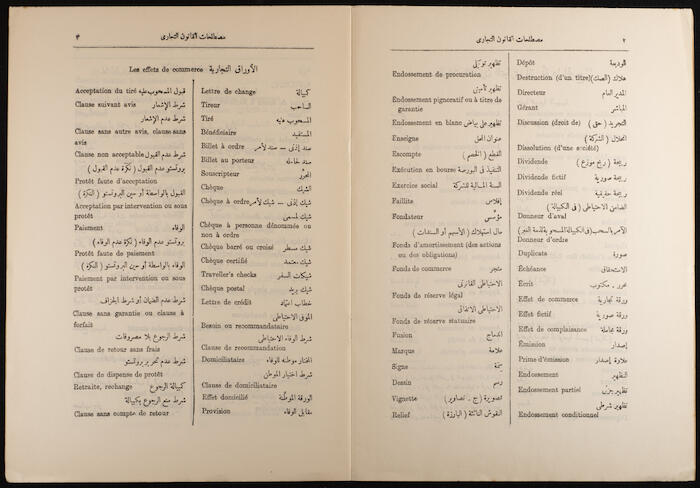 ٢
مصطلحات القانون التجارى
Dépôt الوديعة
Destruction (d'un titre) هلاك (الصك)
Directeur المدير العام
Gérant المباشر
Discussion (droit de) التجريد (حق)
انحلال (الشركة)
Dissolution (d'une société)
Dividende ربيحة (ربح موزع)
Dividende fictif ربيحة صورية
Dividende réel ربيحة حقيقية
الضامن الاحتياطى (فى الكمبيالة)
Donneur d'aval
Donneur d'ordre
Duplicate صورة
Échéance الاستحقاق
Écrit محرر . مكتوب
Effet de commerce ورقة تجارية
Effet fictif ورقة صورية
Effet de complaisance ورقة مجاملة
Émission إصدار
Prime d'émission علاوة إصدار
Endossement التظهير
Endossement partiel تظهير جزئى
تظهير شرطى
Endossement conditionnel
تظهير توكيلى
Endossement de procuration
تظهير تأمينى
Endossement pignoratif ou à titre de
garantie
Endossement en blanc تظهير على بياض
Enseigne عنوان المحل
Escompte القطع (الخصم)
Exécution en bourse التنفيذ فى البورصة
Exercice social السنة المالية للشركة
Faillite إفلاس
Fondateur مؤسس
مال استهلاك (الأسهم أو السندات)
Fonds d'amortissement (des actions
ou des obligations)
Fonds de commerce متجر
الاحتياطى القانونى
Fonds de réserve légal
الاحتياطى الاتفاقى
Fonds de réserve statuaire
Fusion اندماج
Marque علامة
Signe سمة
Dessin رسم
Vignette تصويرة (ج . تصاوير)
Relief النقوش الناتئة (البارزة)
مصطلحات القانون التجارى
٣
Les effets de commerce الأوراق التجارية
Lettre de change كمبيالة
Tireur الساحب
Tiré المسحوب عليه
Bénéficiaire المستفيد
Billet à ordre سند إذنى – سند لأمر
Billet au porteur سند لحامله
Souscripteur المحرر
Chèque الشيك
Chèque à ordre شيك إذنى – شيك لأمر
شيك لمسمى
Chèque à personne dénommée ou
non à ordre
Chèque barré ou croisé شيك مسطر
Chèque certifié شيك معتمد
Traveller's checks شيكات السفر
Chèque postal شيك بريد
Lettre de crédit خطاب اعتماد
الموفى الاحتياطى
Besoin ou recommandataire
شرط الوفاء الاحتياطى
Clause de recommandation
Domiciliataire المختار موطنه للوفاء
شرط اختيار الموطن
Clause de domiciliataire
Effet domicilié الورقة الموطنة
Provision مقابل الوفاء
Acceptation du tiré قبول المسحوب عليه
Clause suivant avis شرط الإشعار
شرط عدم الإشعار
Clause sans autre avis, clause sans
avis
Clause non acceptable شرط عدم القبول
بروتستو عدم القبول (نكرة عدم القبول)
Protêt faute d'acceptation
القبول بالواسطة أو حين البروتستو (النكرة)
Acceptation par intervention ou sous
protêt
Paiement الوفاء
بروتستو عدم الوفاء (نكرة عدم الوفاء)
Protêt faute de paiement
الوفاء بالواسطة أو حين البروتستو (النكرة)
Paiement par intervention ou sous
protêt
شرط عدم الضمان أو شرط الجزاف
Clause sans garantie ou clause à
forfait
شرط الرجوع بلا مصروفات
Clause de retour sans frais
شرط عدم تحرير بروتستو
Clause de dispense de protêt
Retraite, rechange كمبيالة الرجوع
شرط منع الرجوع بكمبيالة
Clause sans compte de retour